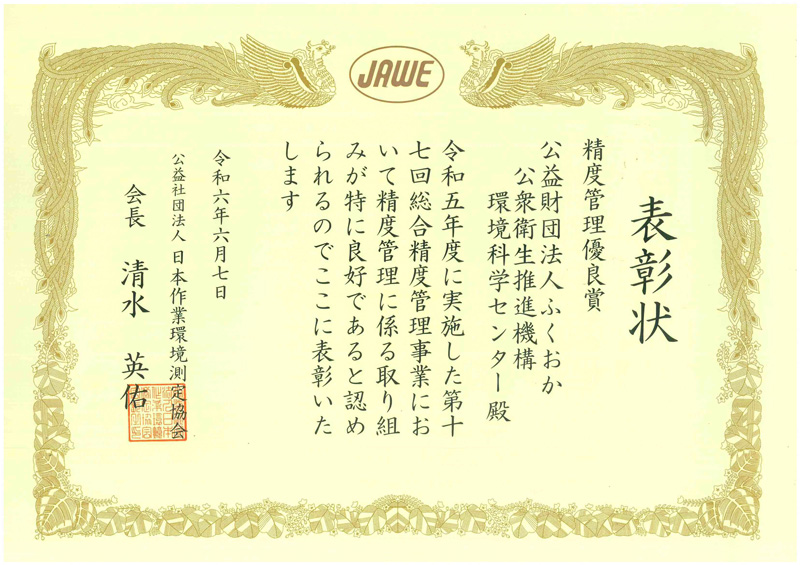 JAWE
表彰状
精度管理優良賞
公益財団法人ふくおか
公衆衛生推進機構
環境科学センター 殿
令和五年度に実施した第十
七回総合精度管理事業にお
いて精度管理に係る取り組
みが特に良好であると認め
られるのでここに表彰いた
します
令和六年六月七日
公益社団法人 日本作業環境測定協会
会長 清水 英佑